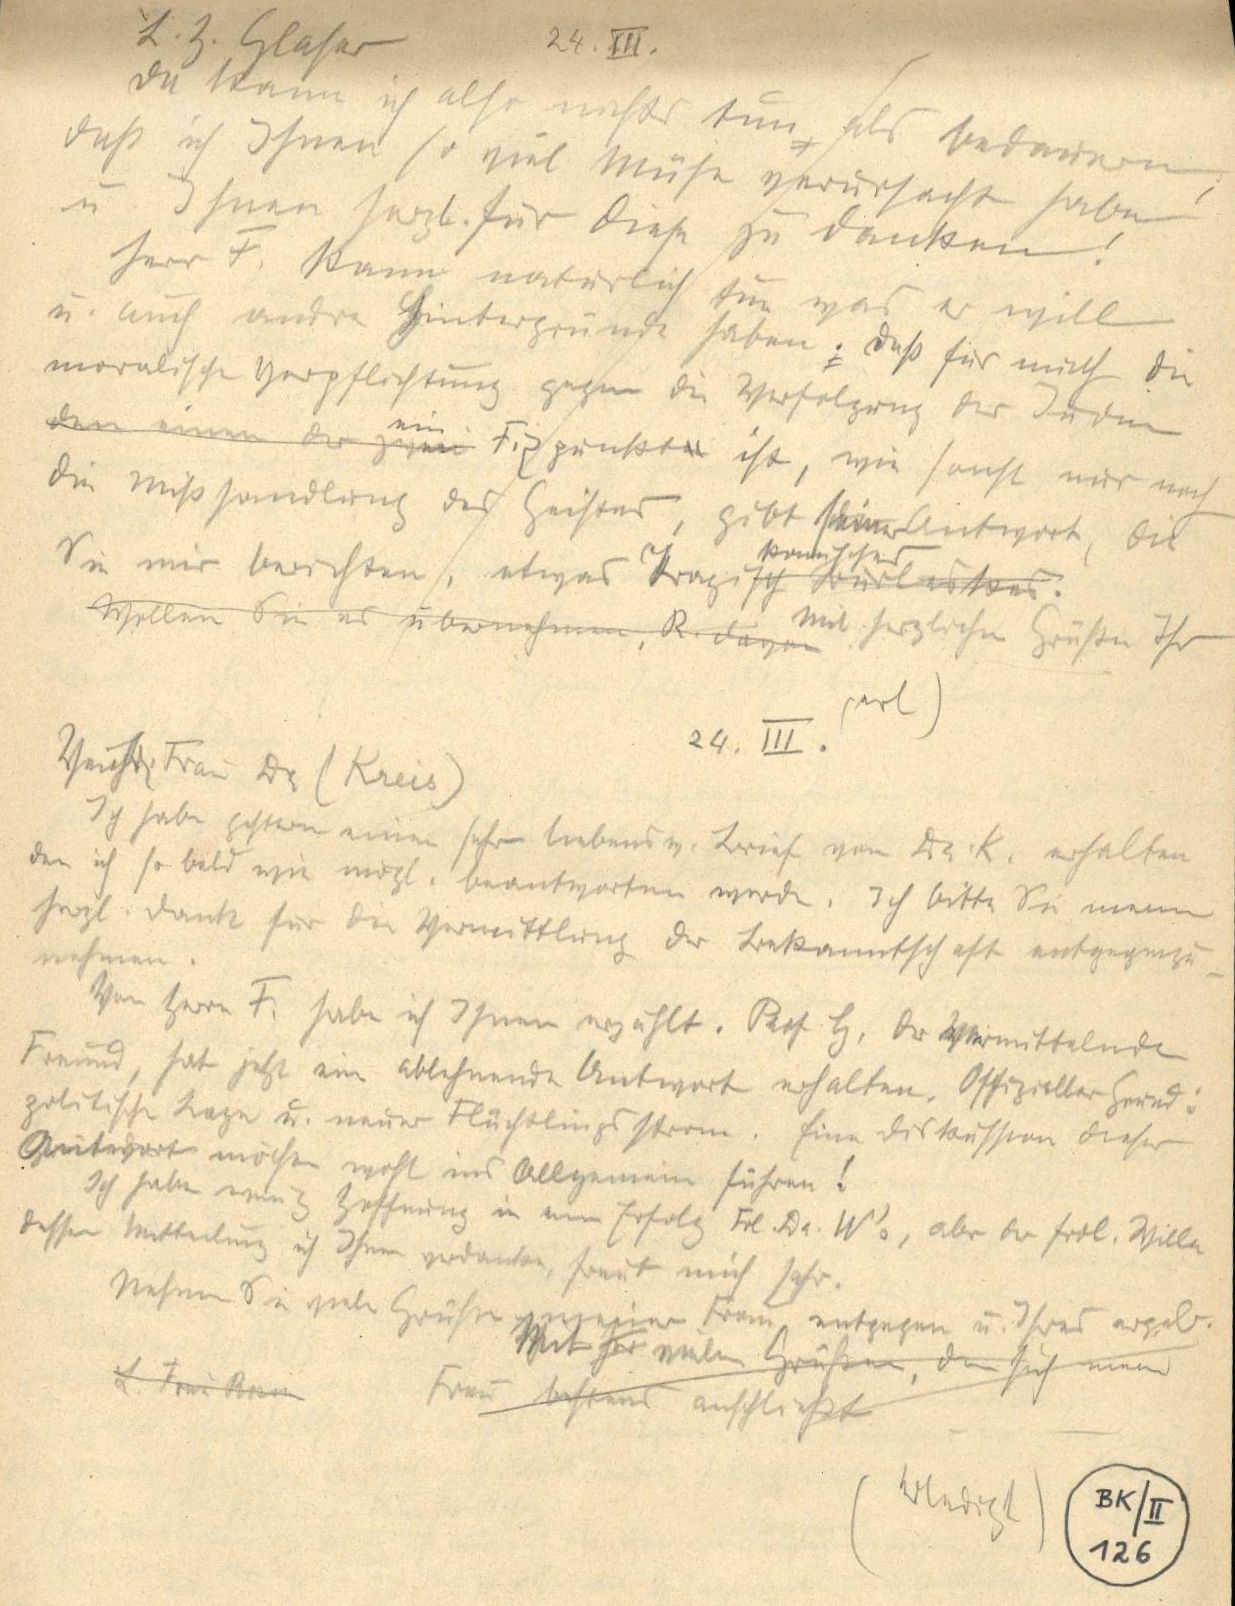 L. H. Glaser 24. III.
Da kann ich also nichts tun, als bedauern,
daß ich Ihnen so viel Mühe verursacht habe
u. Ihnen herzl. für diese zu danken!
Herr F. kann natürlich tun was er will
u. auch andre Hintergründe haben: daß für mich die
moralische Verpflichtung gegen die Verfolgung der Juden
den einen der zwei ein Fixpunkte ist, wie sonst nur noch
die Mißhandlung des Geistes, gibt seiner Antwort, die
Sie mir berichten, etwas Tragisch komisches Burleskes.
Wollen Sie es übernehmen, R. davon Mit herzlichen Grüßen Ihr
erl)
24. III.
Verehrte Frau Dr (Kreis)
Ich habe gestern einen sehr liebensw. Brief von Dr. K. erhalten
den ich so bald wie mögl. beantworten werde. Ich bitte Sie meinen
herzl. Dank für die Vermittlung der Bekanntschaft entgegenzu-
nehmen.
Von Herrn F. habe ich Ihnen erzählt. Prof. H. der vermittelnde
Freund, hat jetzt eine ablehnende Antwort erhalten. Offizieller Grund:
politische Lage u. neuer Flüchtlingsstrom. Eine Diskussion dieser
Antwort möchte wohl ins Allgemeine führen!
Ich habe wenig Hoffnung in einen Erfolg Frl. Dr. W's, aber der frdl. Wille
dessen Mitteilung ich Ihnen verdanke, freut mich sehr.
Nehmen Sie viele Grüße meiner Frau entgegen u. Ihres ergeb.
Mit vielen Grüßen, denen sich meine
L. Frau Frau bestens anschließt
(Erledigt)
BK/II
126